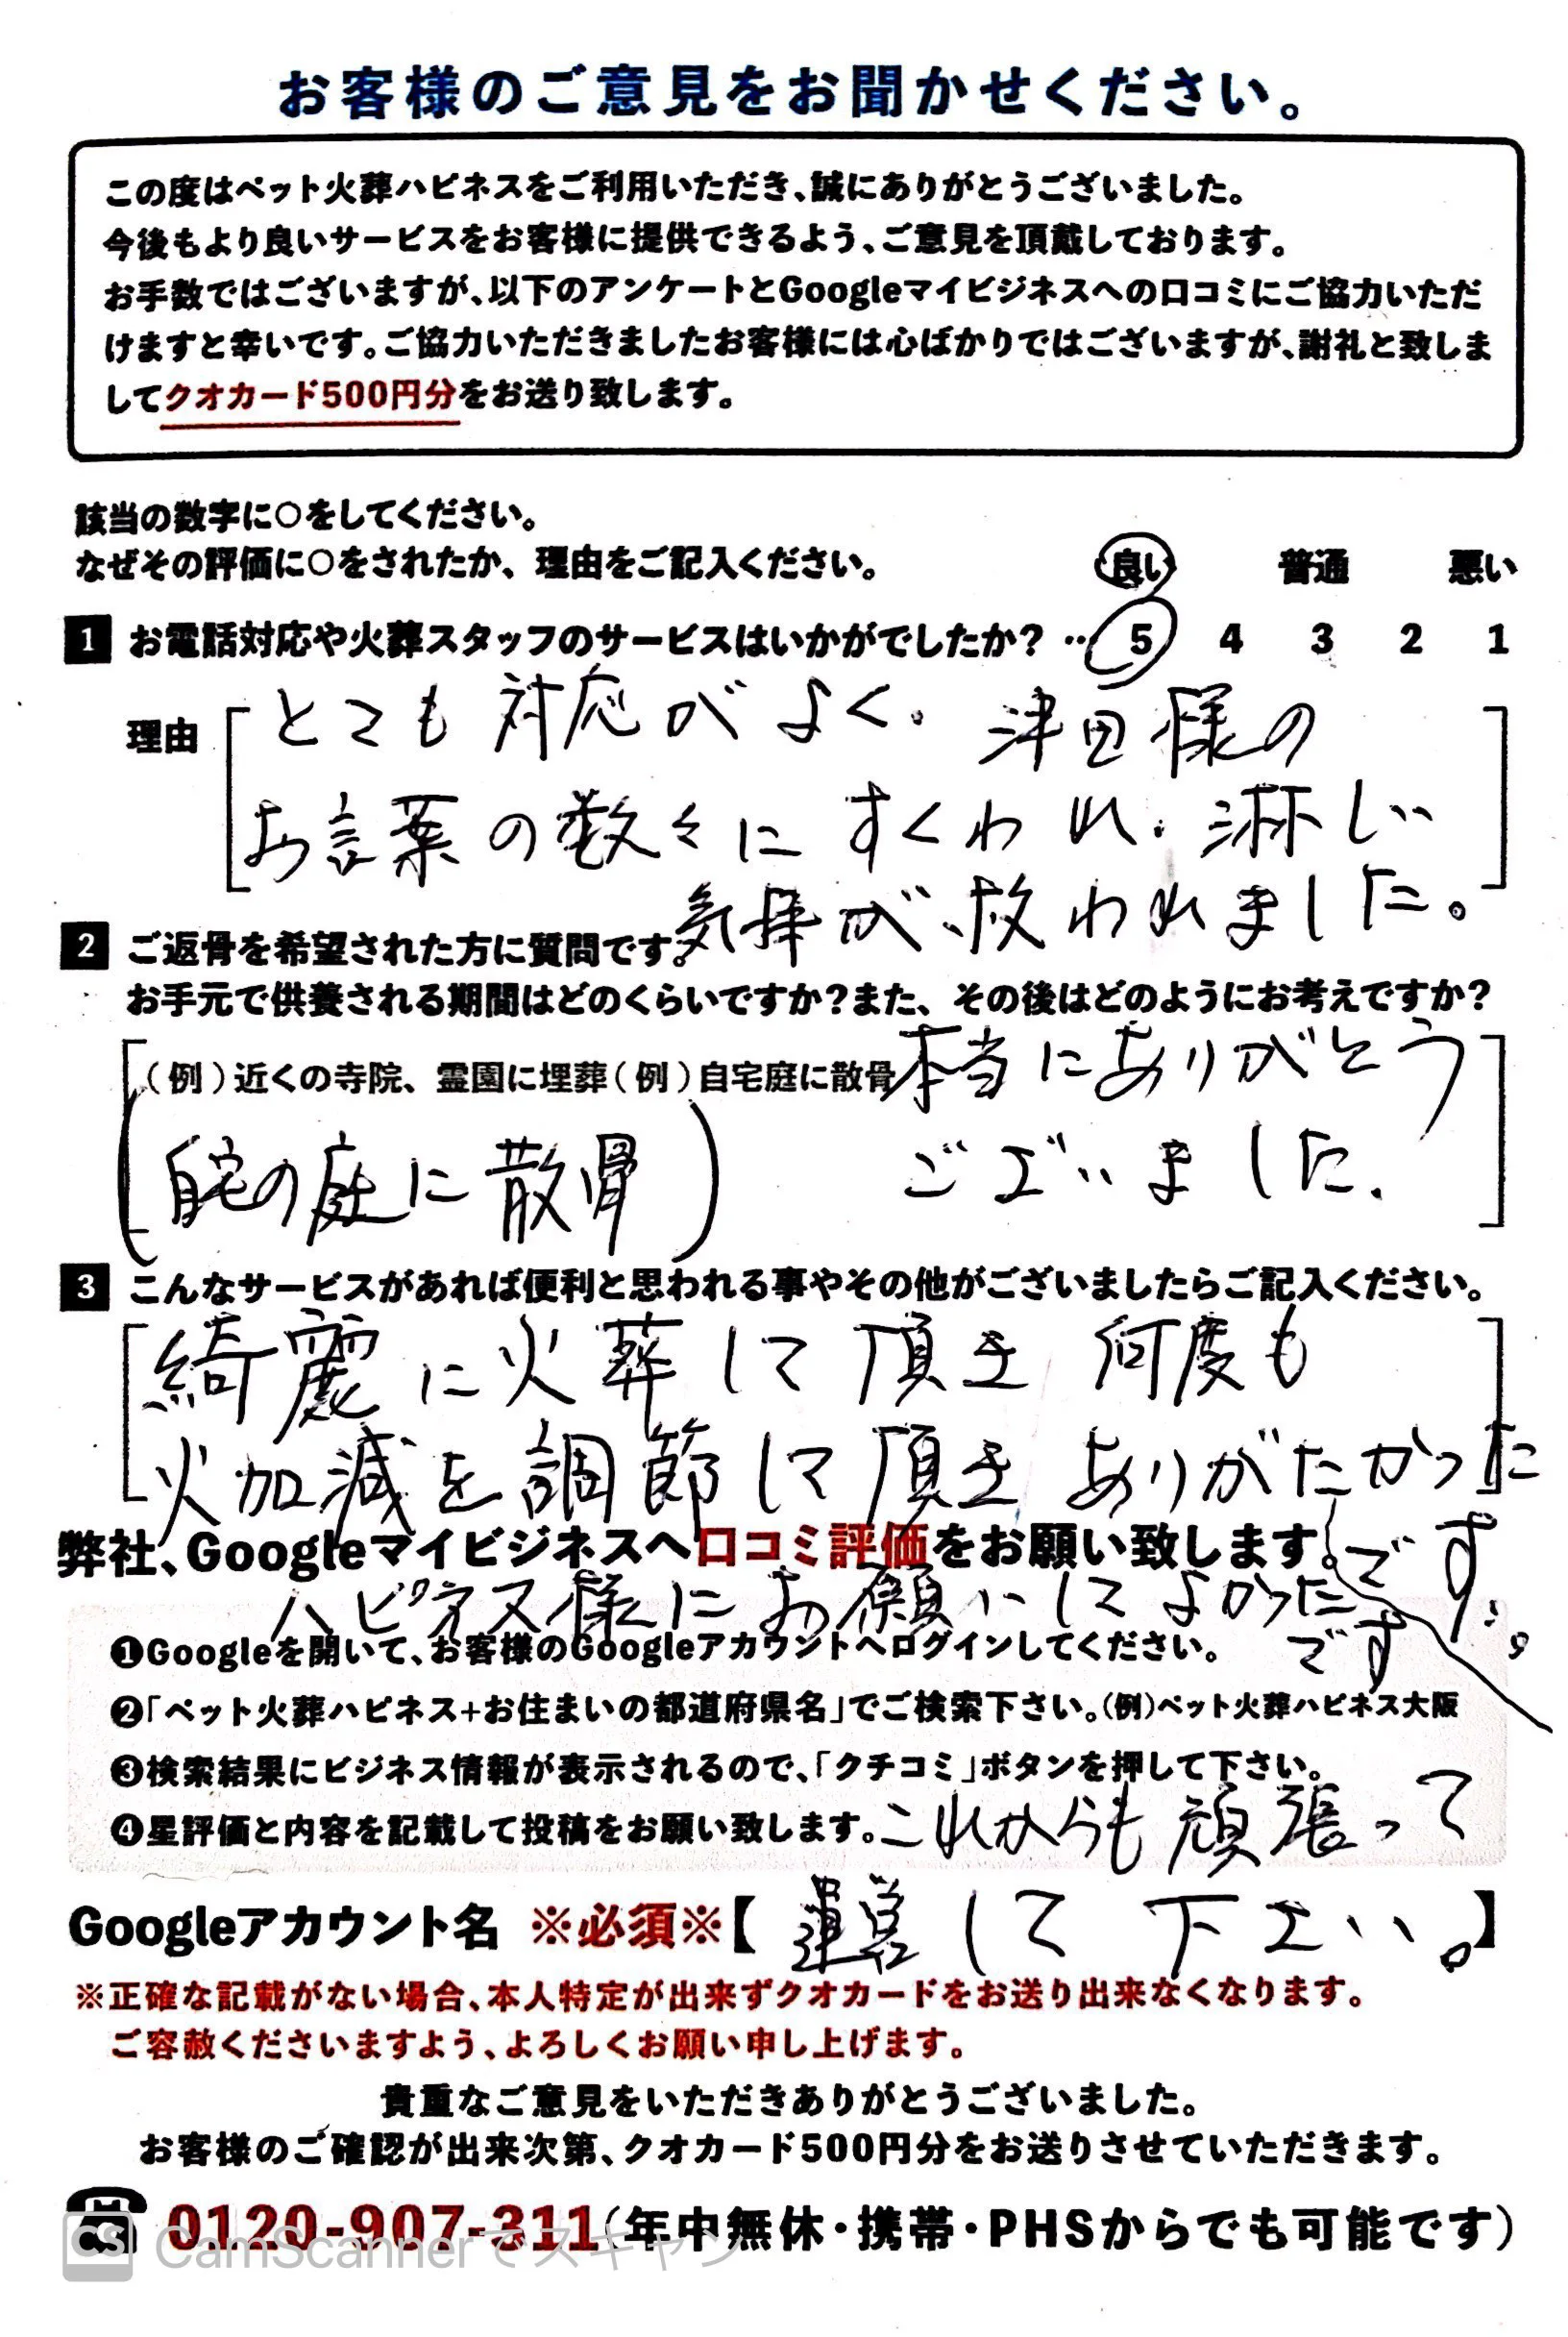 お客様のご意見をお聞かせください。
この度はペット火葬ハピネスをご利用いただき、誠にありがとうございました。
今後もより良いサービスをお客様に提供できるよう、ご意見を頂戴しております。
お手数ではございますが、以下のアンケートとGoogleマイビジネスへの口コミにご協力いただ
けますと幸いです。ご協力いただきましたお客様には心ばかりではございますが、謝礼と致しま
してクオカード500円分をお送り致します。
該当の数字に○をしてください。
なぜその評価に○をされたか、理由をご記入ください。 良い 普通 悪い
1 お電話対応や火葬スタッフのサービスはいかがでしたか？… 5 4 3 2 1
理由 とても対応がよく。津田様の
お言葉の数々にすくわれ、淋しい
気持が、救われました。
2 ご返骨を希望された方に質問です。
お手元で供養される期間はどのくらいですか？また、その後はどのようにお考えですか？
（例）近くの寺院、霊園に埋葬（例）自宅庭に散骨 本当にありがとう
(自宅の庭に散骨) ございました、
3 こんなサービスがあれば便利と思われる事やその他がございましたらご記入ください。
綺麗に火葬して頂き何度も
火加減を調節して頂きありがたかった
弊社、Googleマイビジネスへ口コミ評価をお願い致します。です。
ハピネス様にお願いしてよかった
❶Googleを開いて、お客様のGoogleアカウントへログインしてください。 です
❷「ペット火葬ハピネス+お住まいの都道府県名」でご検索下さい。(例)ペット火葬ハピネス大阪
❸検索結果にビジネス情報が表示されるので、「クチコミ」ボタンを押して下さい。
❹星評価と内容を記載して投稿をお願い致します。これからも頑張って
Googleアカウント名 ※必須※【 運営して下さい。】
※正確な記載がない場合、本人特定が出来ずクオカードをお送り出来なくなります。
ご容赦くださいますよう、よろしくお願い申し上げます。
貴重なご意見をいただきありがとうございました。
お客様のご確認が出来次第、クオカード500円分をお送りさせていただきます。
0120-907-311(年中無休・携帯・PHSからでも可能です)
CS CamScannerでスキャン